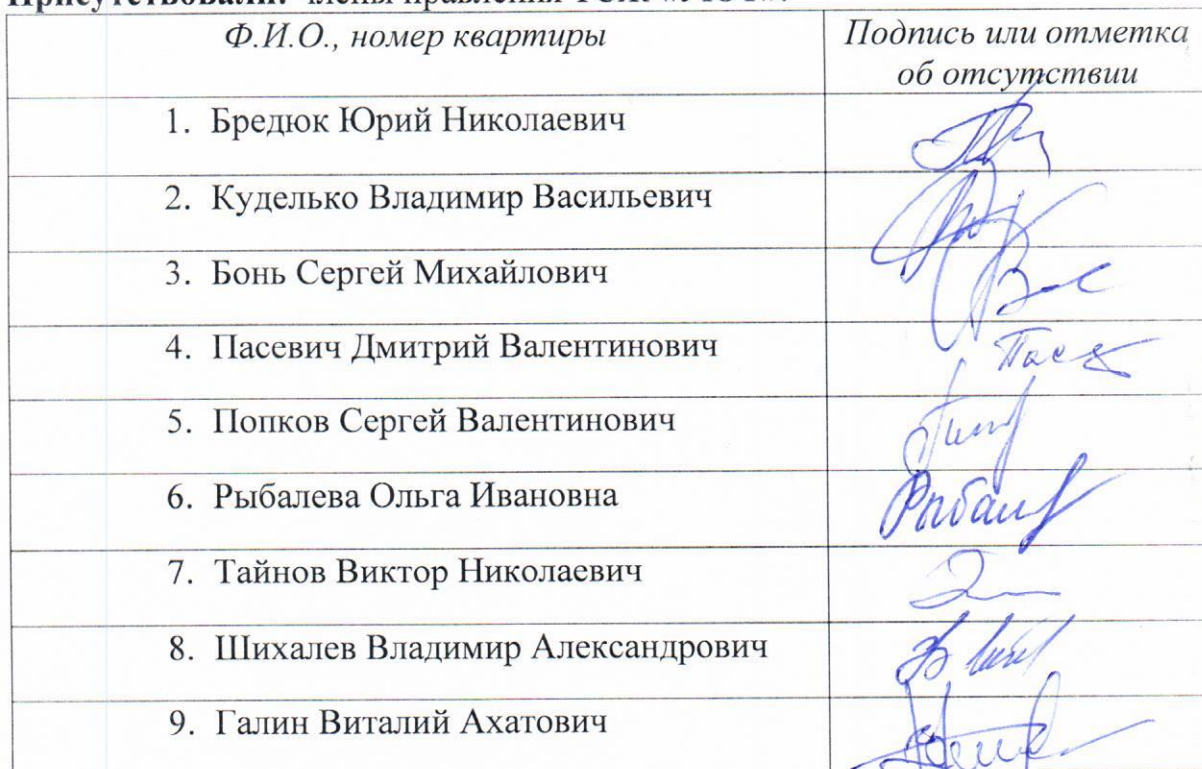 Присутствовали: члены правления ТСЖ
Ф.И.О., номер квартиры
Подпись или отметка
об отсутствии
1. Бредюк Юрий Николаевич
2. Куделько Владимир Васильевич
3. Бонь Сергей Михайлович
4. Пасевич Дмитрий Валентинович
5. Попков Сергей Валентинович
6. Рыбалева Ольга Ивановна
7. Тайнов Виктор Николаевич
8. Шихалев Владимир Александрович
9. Галин Виталий Ахатович